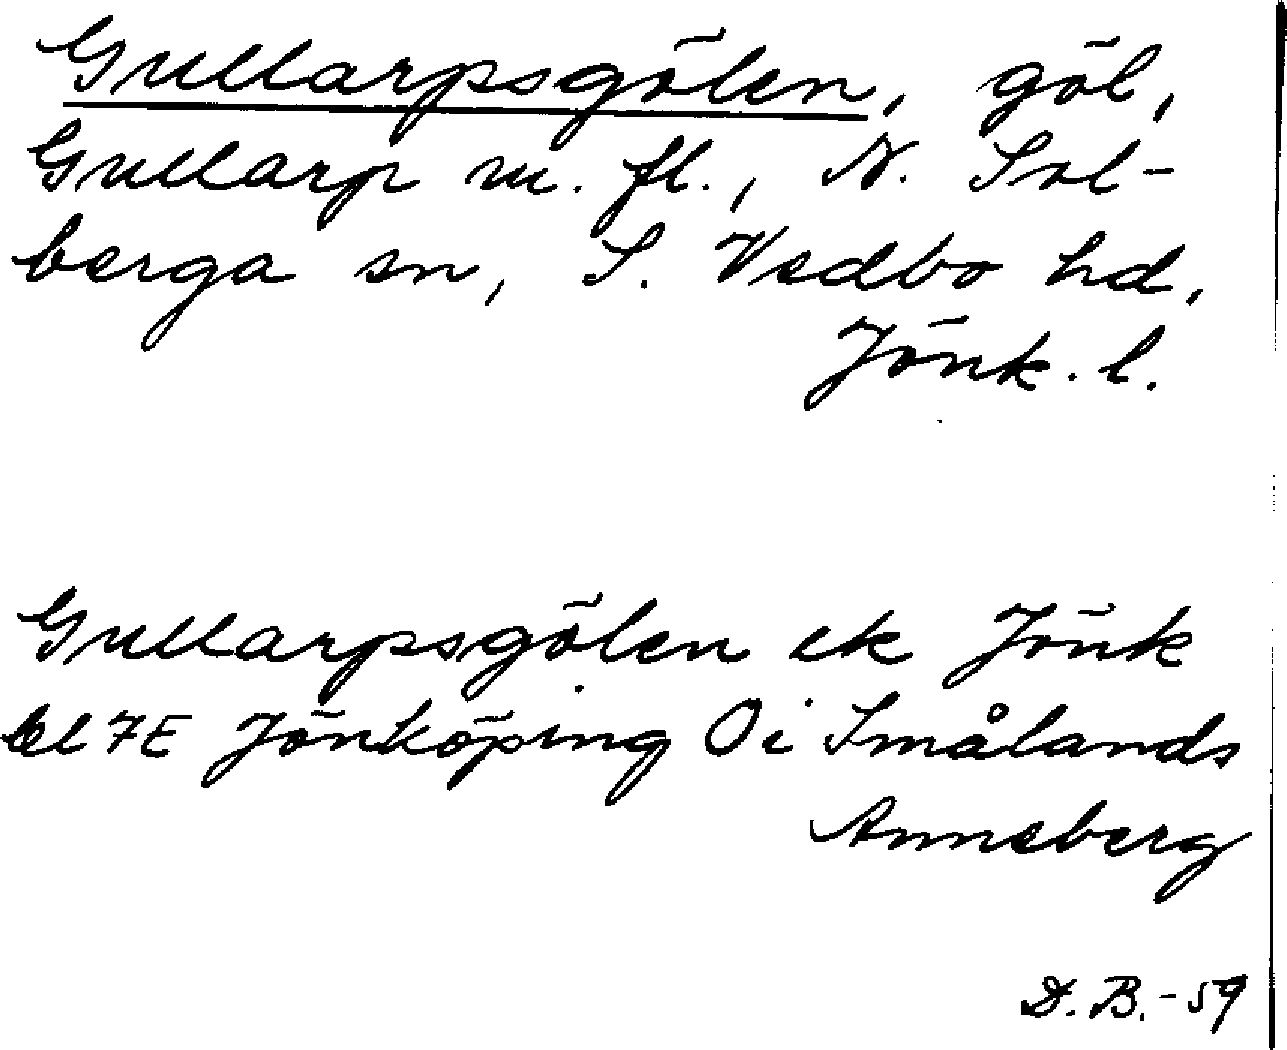 Gullarpsgölen, göl,
Gullarp m. fl., N. Sol-
berga sn, S. Vedbo hd,
Jönk. l.
Gullarpsgölen ek Jönk
bl 7E Jönköping O i Smålands
Anneberg
D. B. - 59